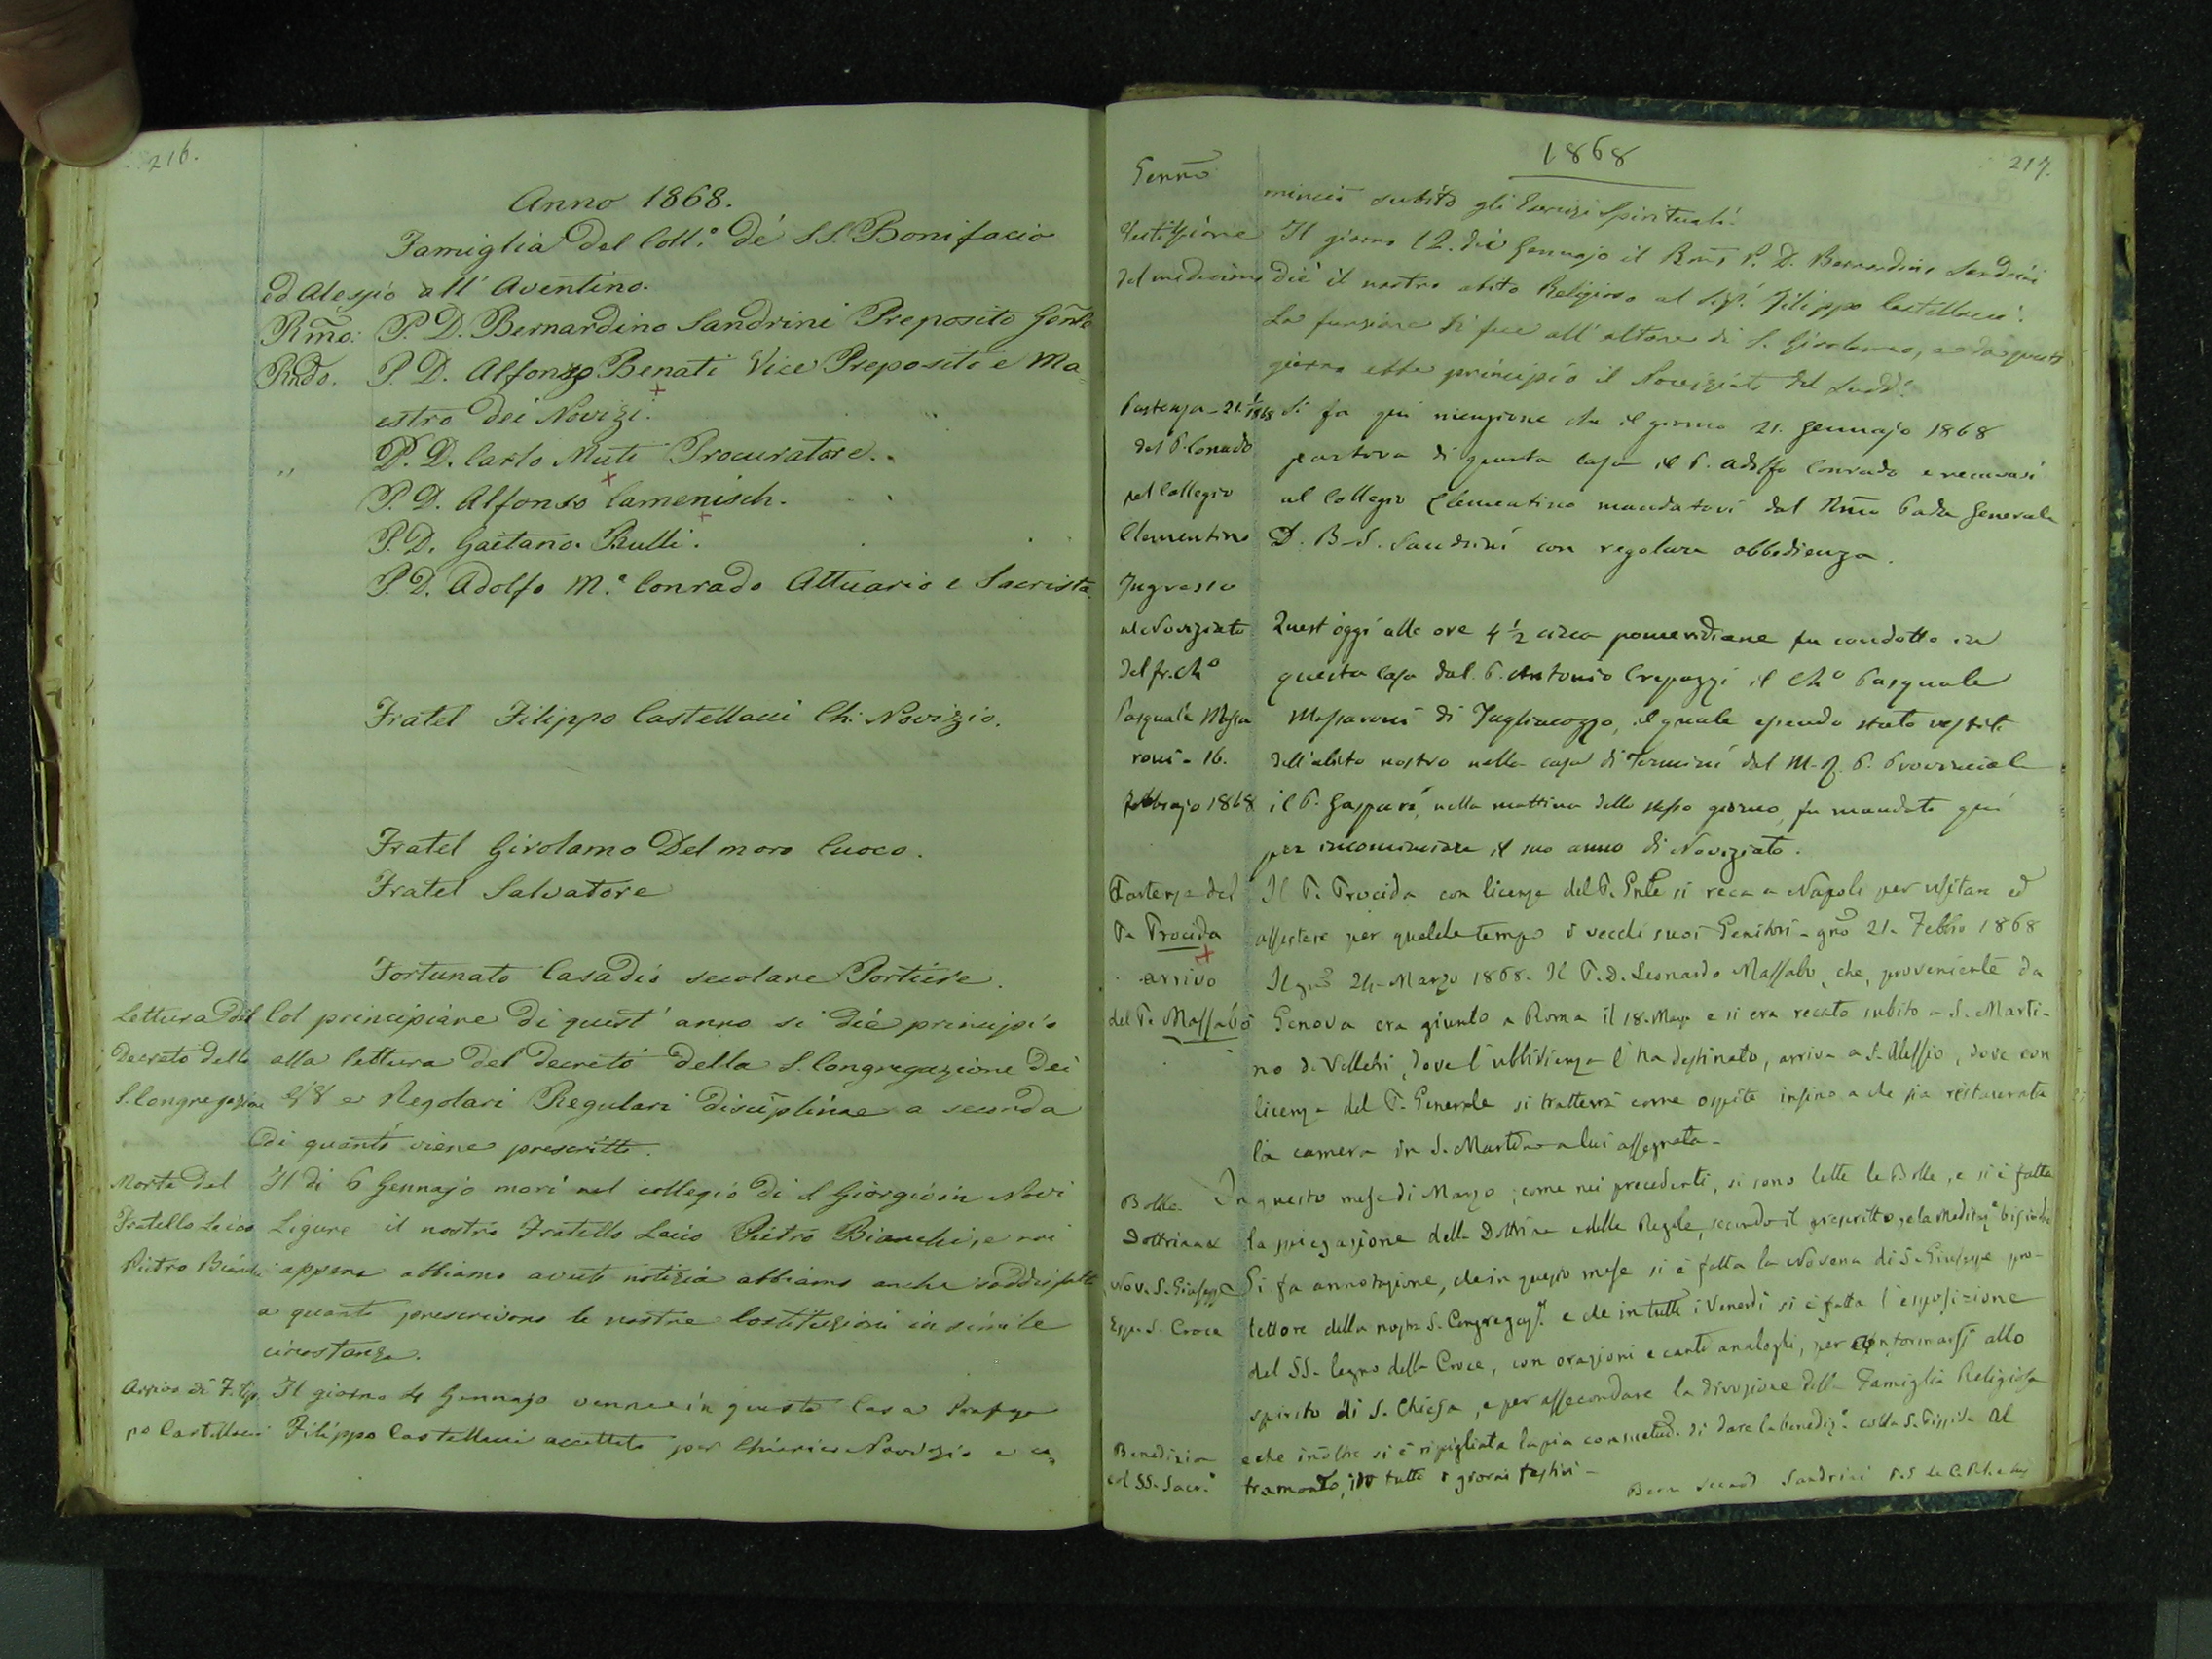 216.
Anno 1868.
Famiglia del Coll.º de' SS. Bonifacio
ed Alessio all' Aventino.
Rm̃o: P. D. Bernardino Sandrini Preposito Genle
Rndo. P. D. Alfonzo Benati Vice Preposito e Ma=
estro dei Novizi.
" P. D. Carlo Muti Procuratore.
P. D. Alfonso Camenisch.
P. D. Gaetano Rulli.
P. D. Adolfo M.ª Conrado Attuario e Sacrista.
Fratel Filippo Castellacci Ch: Novizio.
Fratel Girolamo Delmoro Cuoco.
Fratel Salvatore
Fortunato Casadio secolare Portiere.
Lettura del Col principiare di quest' anno si diè principio
Decreto della alla lettura del decreto della S. Congregazione dei
S. Congregazione e Regolari Regulari disciplinae a seconda
di quanto viene prescritto.
Morte del Il di 6 Gennajo morì nel collegio di S Giorgio in Novi
Fratello Laico Ligure il nostro Fratello Laico Pietro Bianchi, e noi
Pietro Bianchi appena abbiamo avuto notizia abbiamo anche soddisfatto
a quanto prescrivono le nostre Costituzioni in simile
circostanza.
Arrivo di Filip Il giorno 4 Gennajo venne in questa Casa
po Castellacci Filippo Castellacci accettato per Chierico Novizio e co=
1868
217.
Genno
minciò subito gli Esercizi Spirituali.
Vestizione Il giorno 12. di Gennajo il Rm̃o P. D. Bernardino Sandrini
del medesimo diè il nostro abito Religioso al Sig.r Filippo Castellacci.
La funzione si fece all' altare di S. Girolamo, e da questo
giorno ebbe principio il Noviziato del Sudd.º
Partenza - 21. 1/1868 Si fa qui menzione che il giorno 21. Gennajo 1868
del P. Conrado partiva di questa Casa il P. Adolfo Conrado e recavasi
pel Collegio al Collegio Clementino mandatovi dal Rm̃o Padre Generale
Clementino D. B. S. Sandrini con regolare obbedienza.
Ingresso
al Noviziato Quest' oggi alle ore 4 ½ circa pomeridiane fu condotto in
del fr. Chº questa Casa dal P. Antonio Crepazzi il Chº Pasquale
Pasquale Massa Massaroni di Tagliacozzo, il quale essendo stato vestito
roni - 16. dell' abito nostro nella casa di Termini dal M. R. P. Provinciale
Febbrajo 1868 il P. Gaspari, nella mattina dello stesso giorno, fu mandato qui
per incominciare il suo anno di Noviziato.
Partenza del Il P. Procida con licenza del P. Gnle si reca a Napoli per visitare ed
P. Procida assistere per qualche tempo i vecchi suoi Genitori - gnº 21. Febbrº 1868
arrivo Il gnº 24 - Marzo 1868. Il P. D. Leonardo Massabò, che, proveniente da
del P. Massabò Genova era giunto a Roma il 18. Marzo e si era recato subito a S. Marti-
no di Velletri, dove l' ubbidienza l' ha destinato, arriva a S. Alessio, dove con
licenza del P. Generale si tratterrà come ospite insino a che sia restaurata
la camera in S. Martino a lui assegnata -
Bolle. In questo mese di Marzo, come nei precedenti, si sono lette le Bolle, e si è fatta
Dottrina la spiegazione della Dottrina e delle Regole, secondo il prescritto, e la Meditazº
Nov. S. Giuseppe Si fa annotazione, che in questo mese si è fatta la Novena di S. Giuseppe pro-
Esp. S. Croce tettore della nostra S. Congregaz.e e che in tutti i Venerdì si è fatta l' esposizione
del SS. legno della Croce, con orazioni e canti analoghi, per conformarsi allo
spirito di S. Chiesa, e per assecondare la divozione della Famiglia Religiosa
Benedizion e che inoltre si è ripigliata la pia consuetud. di dare la benediz.e colla S. Pisside al
col SS. Sacr.º tramonto, in tutti i giorni festivi -
Bern Sandrini